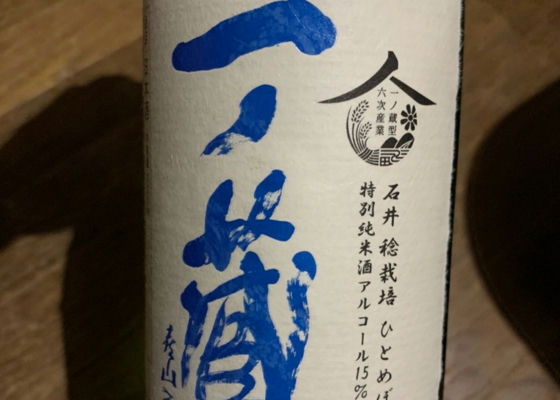 一ノ蔵
一ノ蔵型
六次産業
石井 稔栽培 ひとめぼ
特別純米酒 アルコール15%